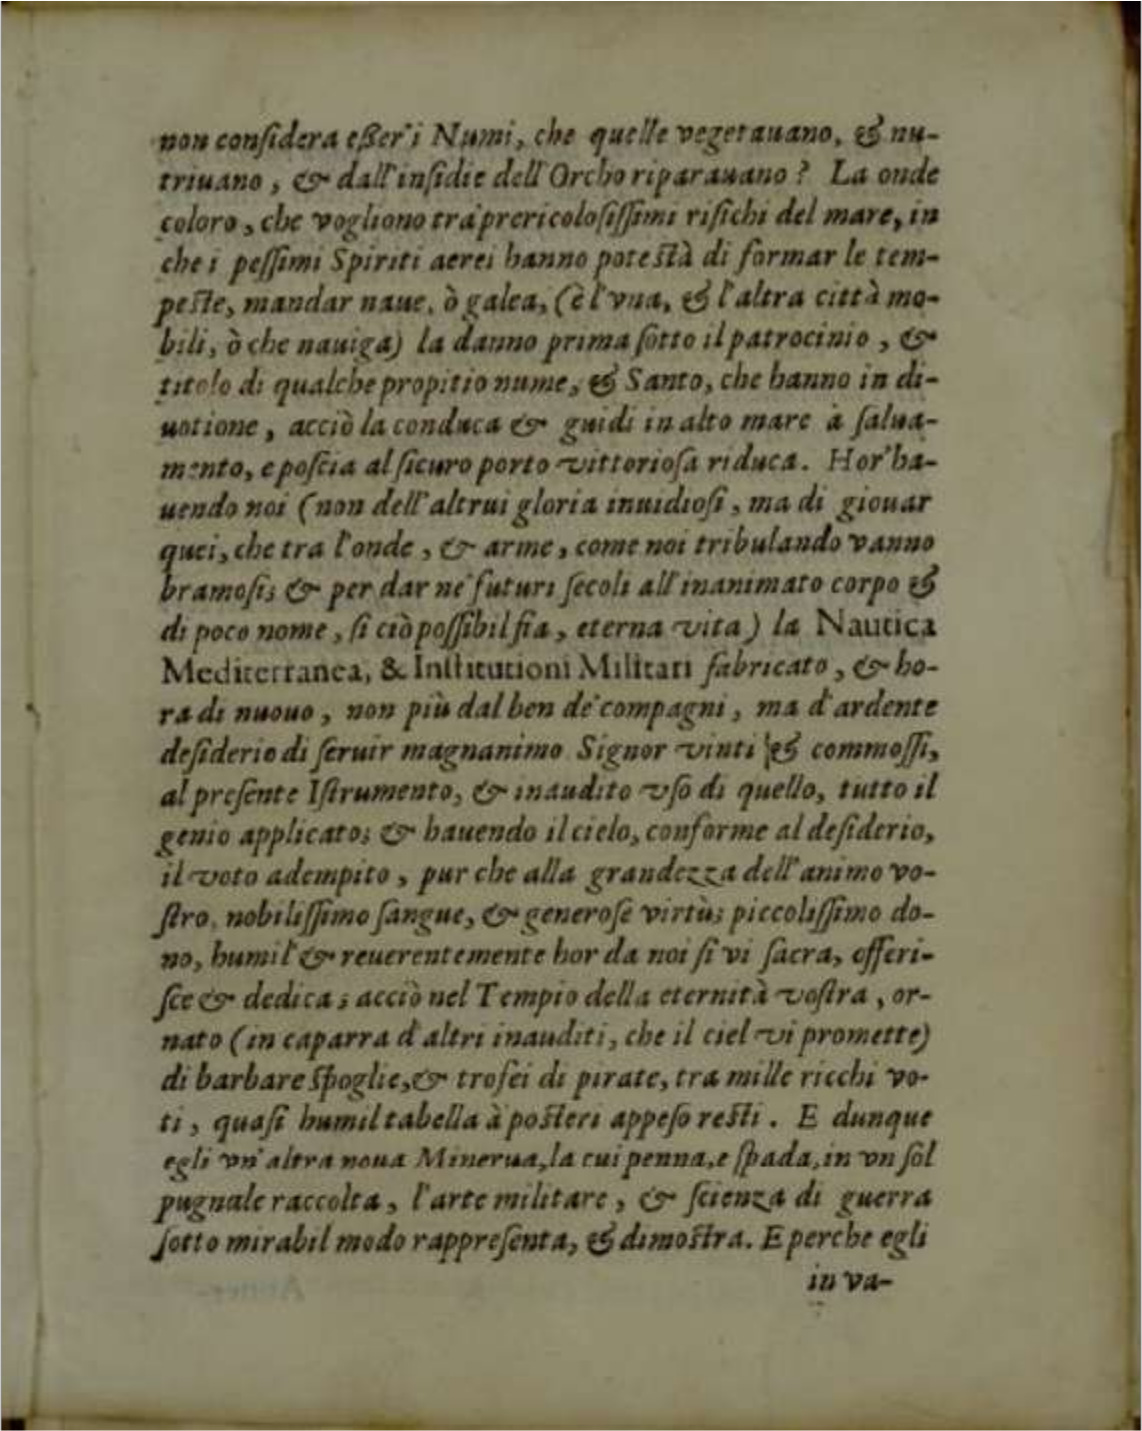 non considera eßer'i Numi, che quelle vegetauano, & nu-
triuano, & dall'insidie dell'Orcho riparauano? La onde
coloro, che vogliono tra'prericolosissimi risichi del mare, in
che i pessimi Spiriti aerei hanno potestà di formar le tem-
peste, mandar naue, ò galea, (è l'vna, & l'altra città mo-
bili, ò che nauiga) la danno prima sotto il patrocinio, &
titolo di qualche propitio nume, & Santo, che hanno in di-
uotione, acciò la conduca & guidi in alto mare à salua-
mento, e poscia al sicuro porto vittoriosa riduca. Hor'ha-
uendo noi (non dell'altrui gloria inuidiosi, ma di giouar
quei, che tra l'onde, & arme, come noi tribulando vanno
bramosi; & per dar ne'futuri secoli all'inanimato corpo &
di poco nome, si ciò possibil fia, eterna vita) la Nautica
Mediterranea, & Institutioni Militari fabricato, & ho-
ra di nuouo, non più dal ben de'compagni, ma d'ardente
desiderio di seruir magnanimo Signor vinti & commossi,
al presente Istrumento, & inaudito vso di quello, tutto il
genio applicato; & hauendo il cielo, conforme al desiderio,
il voto adempito, pur che alla grandezza dell'animo vo-
stro, nobilissimo sangue, & generose virtù; piccolissimo do-
no, humil' & reuerentemente hor da noi si vi sacra, offeri-
sce & dedica; acciò nel Tempio della eternità vostra, or-
nato (in caparra d'altri inauditi, che il ciel vi promette)
di barbare spoglie, & trofei di pirate, tra mille ricchi vo-
ti, quasi humil tabella à posteri appeso resti. E dunque
egli vn'altra noua Minerua, la cui penna, e spada, in vn sol
pugnale raccolta, l'arte militare, & scienza di guerra
sotto mirabil modo rappresenta, & dimostra. E perche egli
in va-